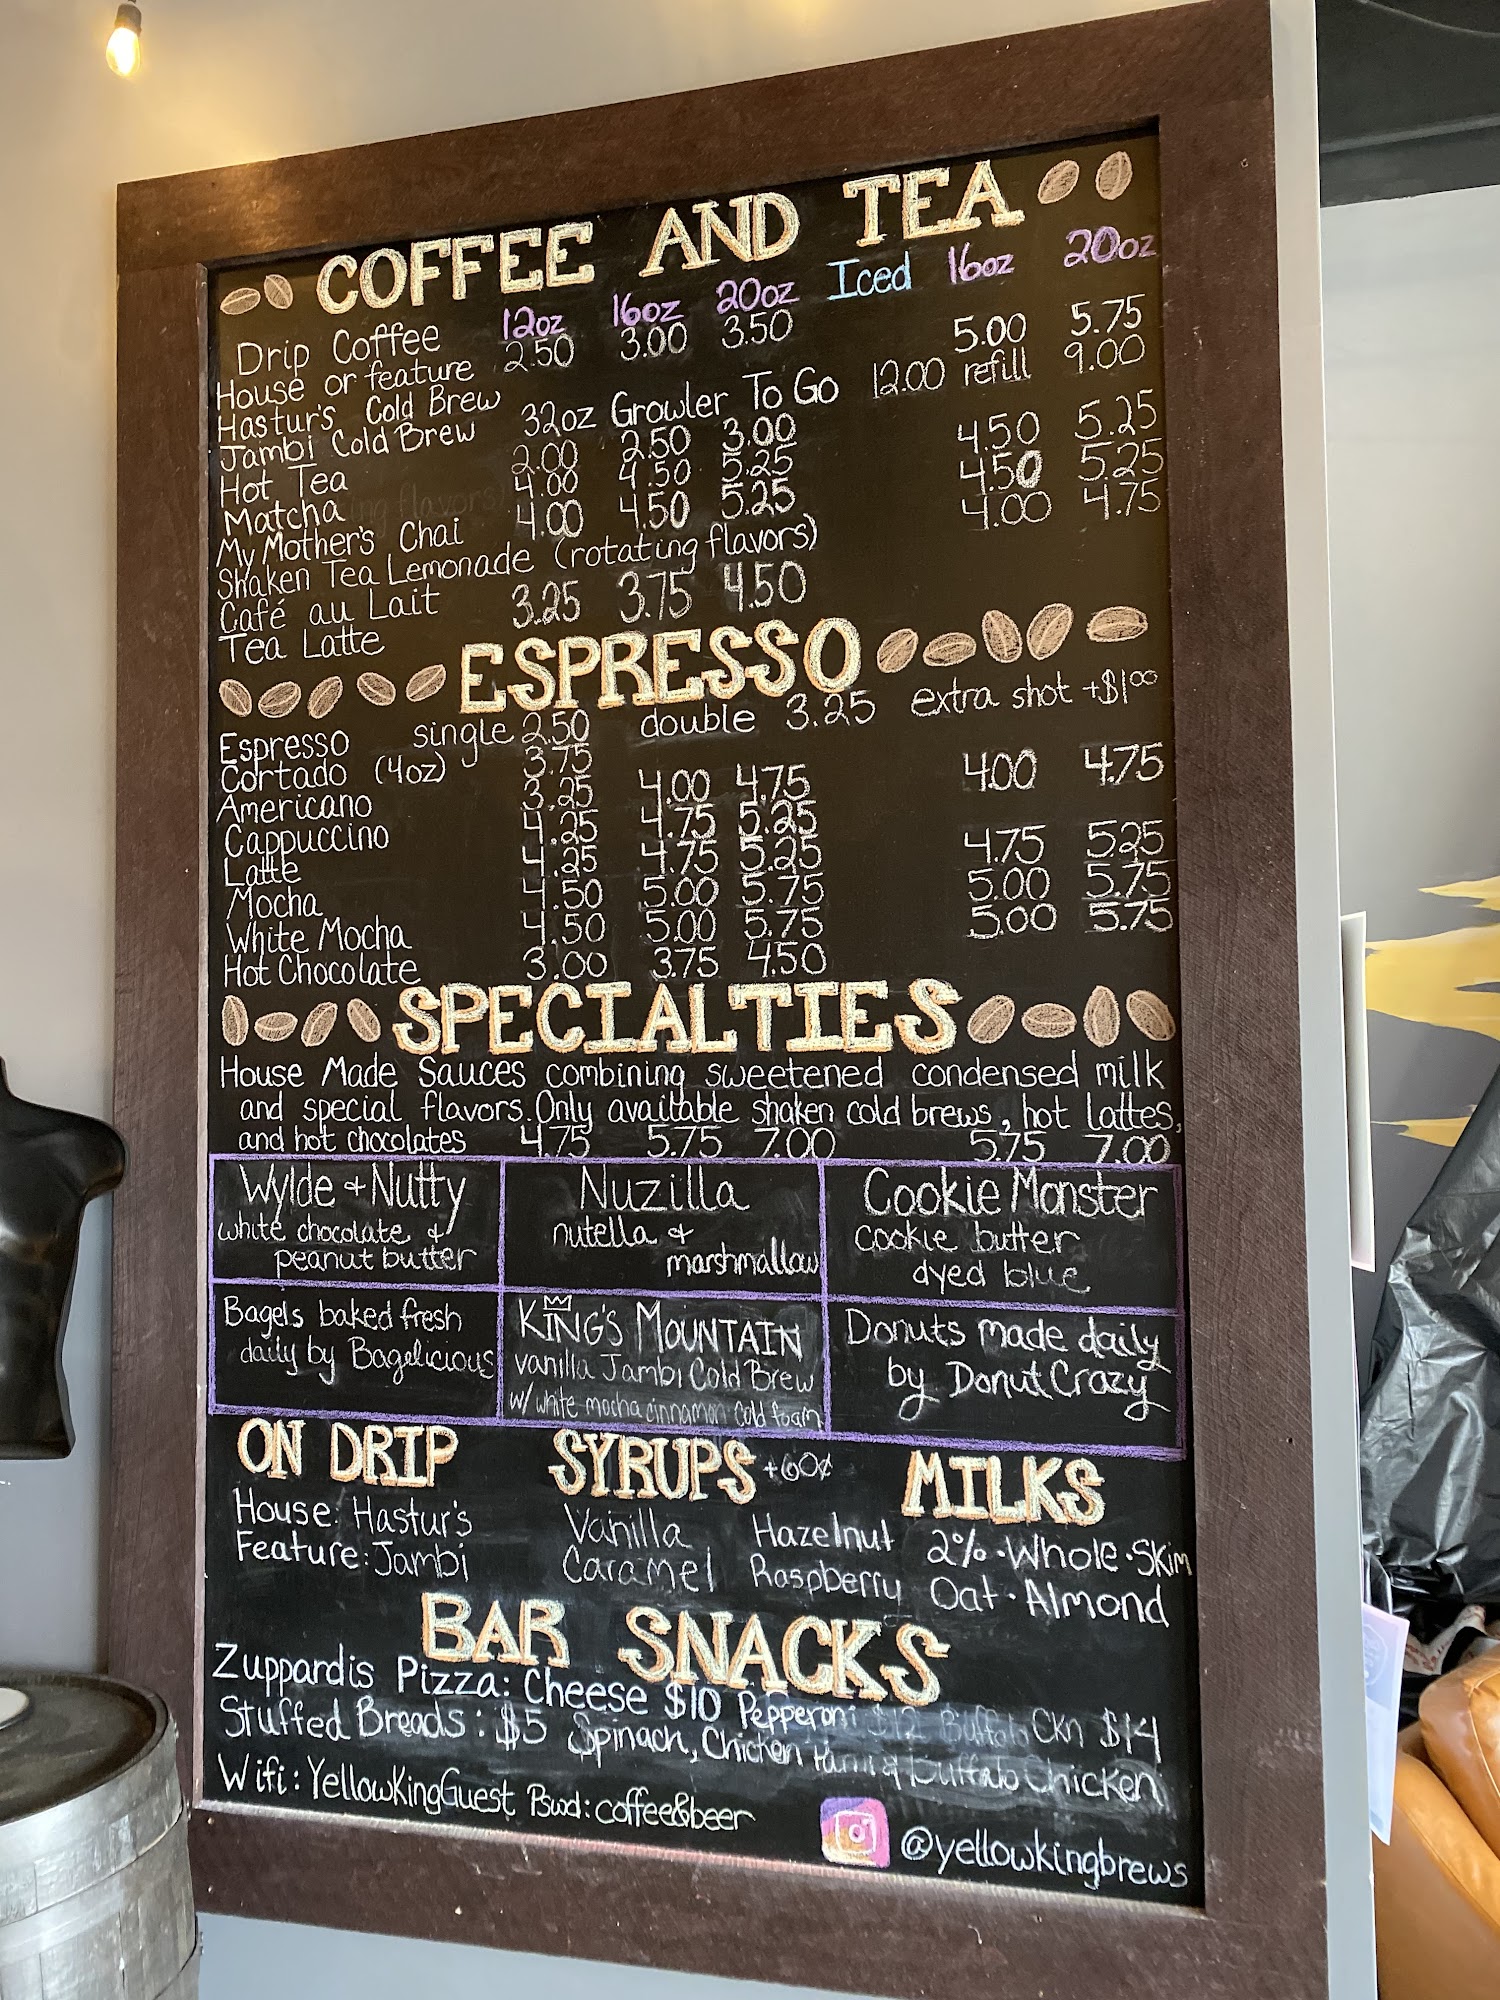 COFFEE AND TEA
12oz 16oz 20oz Iced 16oz 20oz
Drip Coffee 2.50 3.00 3.50
House or feature
Hastur's Cold Brew 5.00 5.75
Jambi Cold Brew 32oz Growler To Go 12.00 refill 9.00
Hot Tea 2.00 2.50 3.00 4.50 5.25
Matcha 4.00 4.50 5.25 4.50 5.25
My Mother's Chai 4.00 4.50 5.25 4.00 4.75
Shaken Tea Lemonade (rotating flavors)
Café au Lait 3.25 3.75 4.50
Tea Latte
ESPRESSO
Espresso single 2.50 double 3.25 extra shot +$1.00
Cortado (4oz) 3.75
Americano 3.25 4.00 4.75 4.00 4.75
Cappuccino 4.25 4.75 5.25
Latte 4.25 4.75 5.25 4.75 5.25
Mocha 4.50 5.00 5.75 5.00 5.75
White Mocha 4.50 5.00 5.75 5.00 5.75
Hot Chocolate 3.00 3.75 4.50
SPECIALTIES
House Made Sauces combining sweetened condensed milk
and special flavors. Only available shaken cold brews, hot lattes,
and hot chocolates 4.75 5.75 7.00 5.75 7.00
Wylde + Nutty
white chocolate &
peanut butter
Nuzilla
nutella &
marshmallow
Cookie Monster
cookie butter
dyed blue
Bagels baked fresh
daily by Bagelicious
KING'S MOUNTAIN
vanilla Jambi Cold Brew
w/ white mocha cinnamon cold foam
Donuts made daily
by Donut Crazy
ON DRIP
House: Hastur's
Feature: Jambi
SYRUPS +60¢
Vanilla Hazelnut
Caramel Raspberry
MILKS
2% · Whole · Skim
Oat · Almond
BAR SNACKS
Zuppardis Pizza: Cheese $10 Pepperoni $12 Buffalo Ckn $14
Stuffed Breads: $5 Spinach, Chicken Parm & Buffalo Chicken
Wifi: YellowKingGuest Pswd: coffee&beer
@yellowkingbrews